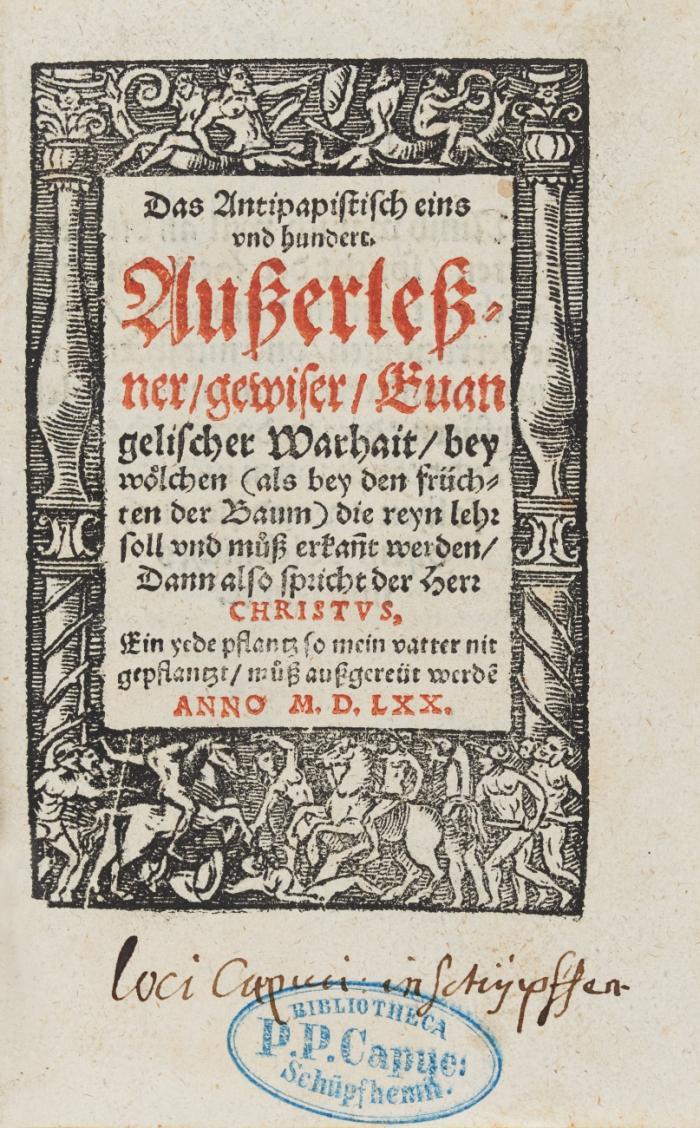 Das Antipapistisch eins
vnd hundert.
Außerleß-
ner/gewiser/Euan
gelischer Warhait/bey
woͤlchen (als bey den früch-
ten der Baum) die reyn lehr
soll vnd můß erkañt werden/
Dann also spricht der Herr
CHRISTVS,
Ein yede pflantz so mein vatter nit
gepflantzt/můß außgereüt werdē
ANNO M. D. LXX.
Loci Capuci: in Schüpffen
BIBLIOTHECA
P.P.Capuc:
Schüpfhemii.